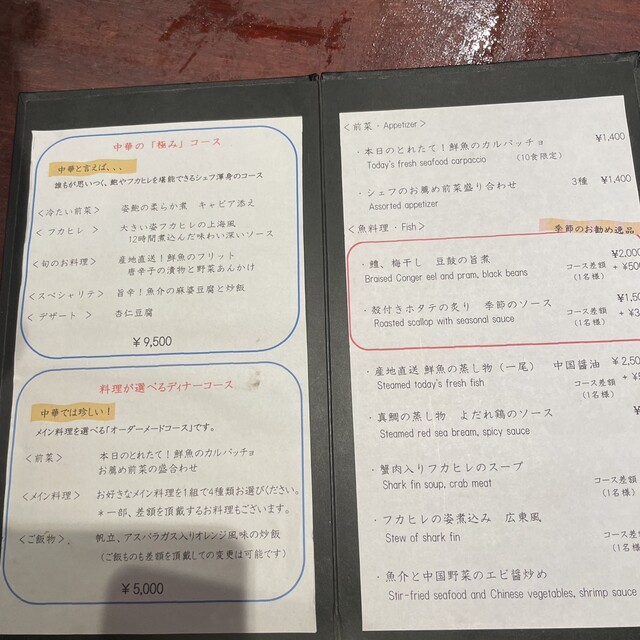 中華の「極み」コース
中華と言えば、、、
誰もが思いつく、鮑やフカヒレを堪能できるシェフ渾身のコース
＜冷たい前菜＞ 姿鮑の柔らか煮 キャビア添え
＜フカヒレ＞ 大きい姿フカヒレの上海風
12時間煮込んだ味わい深いソース
＜旬のお料理＞ 産地直送！鮮魚のフリット
唐辛子の漬物と野菜あんかけ
＜スペシャリテ＞ 旨辛！魚介の麻婆豆腐と炒飯
＜デザート＞ 杏仁豆腐
￥9,500
料理が選べるディナーコース
中華では珍しい！
メイン料理を選べる「オーダーメードコース」です。
＜前菜＞ 本日のとれたて！鮮魚のカルパッチョ
お薦め前菜の盛合わせ
＜メイン料理＞ お好きなメイン料理を1組で4種類お選びください。
＊一部、差額を頂戴するお料理もございます。
＜ご飯物＞ 帆立、アスパラガス入りオレンジ風味の炒飯
（ご飯ものも差額を頂戴しての変更は可能です）
￥5,000
＜前菜・Appetizer＞
・本日のとれたて！鮮魚のカルパッチョ ￥1,400
Today's fresh seafood carpaccio （10食限定）
・シェフのお薦め前菜盛り合わせ 3種 ￥1,400
Assorted appetizer
＜魚料理・Fish＞ 季節のお勧め逸品
・鱧、梅干し 豆鼓の旨煮 ￥2,000
Braised Conger eel and pram, black beans コース差額 + ￥500
（1名様）
・殻付きホタテの炙り 季節のソース ￥1,50
Roasted scallop with seasonal sauce コース差額 + ￥3
（1名様）
・産地直送 鮮魚の蒸し物（一尾） 中国醤油 ￥2,50
Steamed today's fresh fish コース差額
（1名様）
・真鯛の蒸し物 よだれ鶏のソース
Steamed red sea bream, spicy sauce
・蟹肉入りフカヒレのスープ
Shark fin soup, crab meat コース差額
（1名様）
・フカヒレの姿煮込み 広東風
Stew of shark fin コース差
（1名様
・魚介と中国野菜のエビ醤炒め
Stir-fried seafood and Chinese vegetables, shrimp sauce